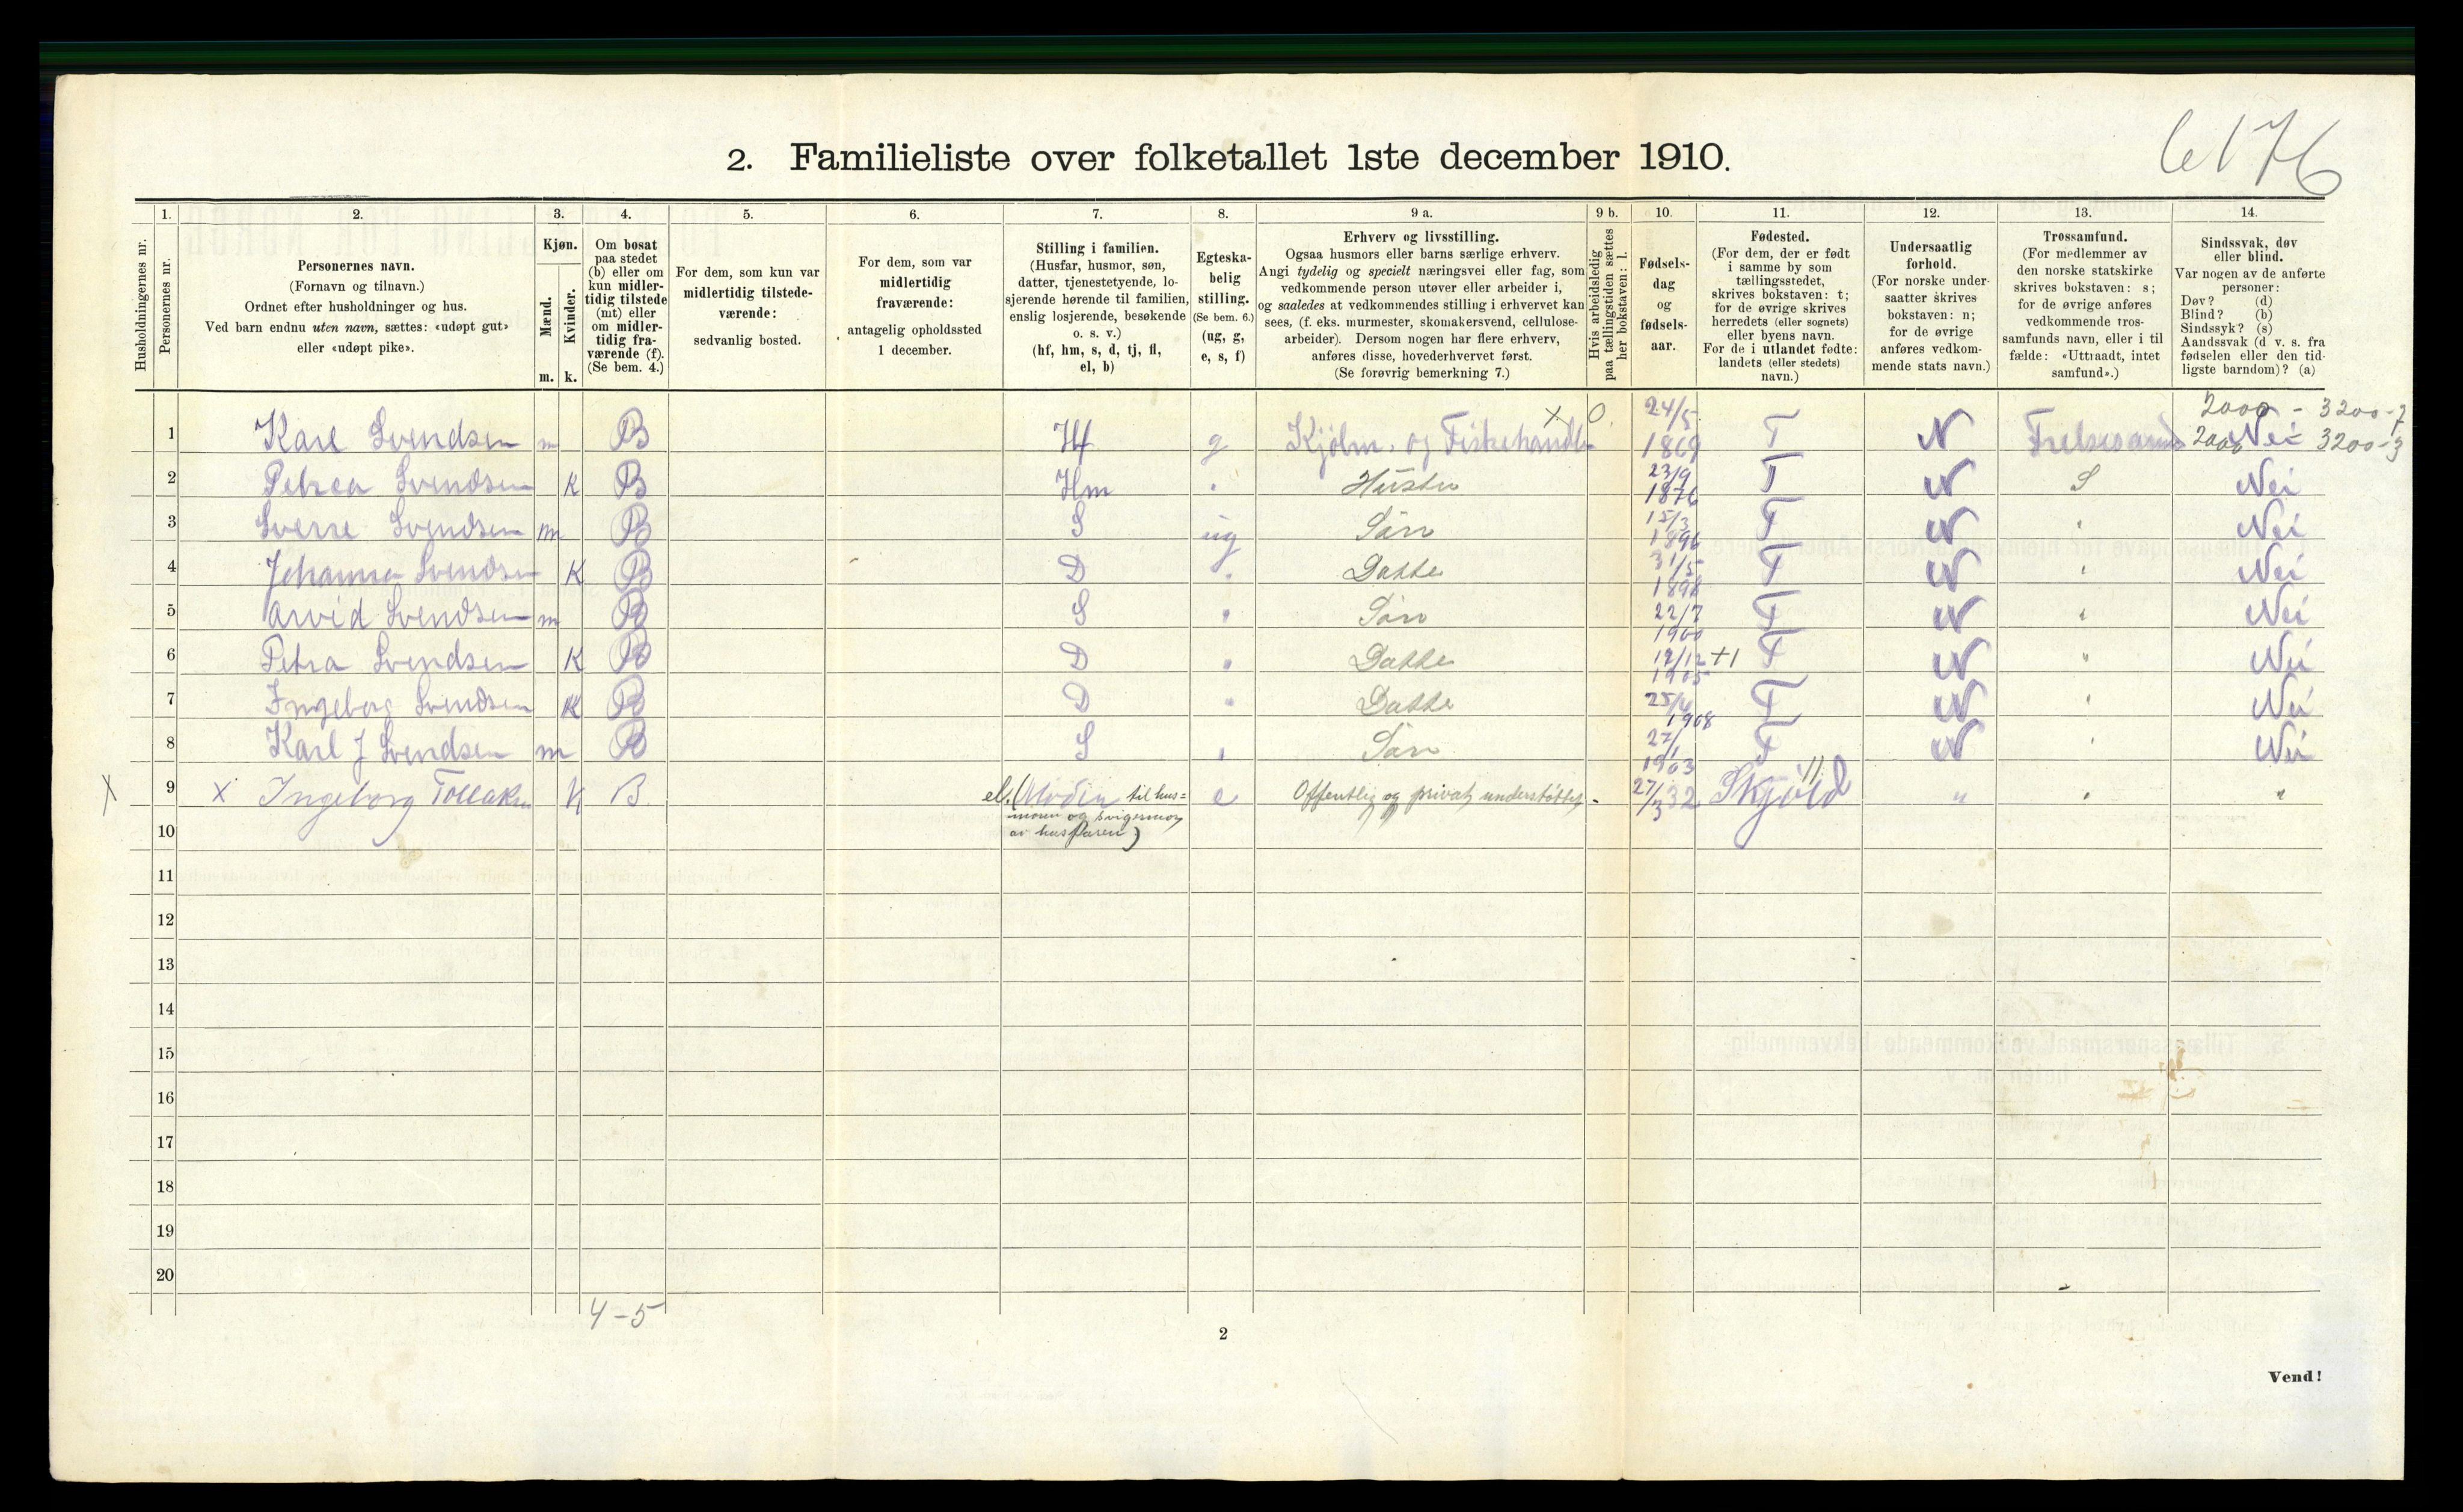 6176
2. Familieliste over folketallet 1ste december 1910.
1. 2. 3. 4. 5. 6. 7. 8. 9 a. 9 b. 10. 11. 12. 13. 14.
Husholdningernes nr.
Personernes nr.
Personernes navn.
(Fornavn og tilnavn.)
Ordnet efter husholdninger og hus.
Ved barn endnu uten navn, sættes: «udøpt gut»
eller «udøpt pike».
Kjøn.
Mænd.
Kvinder.
m. k.
Om bosat
paa stedet
(b) eller om
kun midler-
tidig tilstede
(mt) eller
om midler-
tidig fra-
værende (f).
(Se bem. 4.)
For dem, som kun var
midlertidig tilstede-
værende:
sedvanlig bosted.
For dem, som var
midlertidig
fraværende:
antagelig opholdssted
1 december.
Stilling i familien.
(Husfar, husmor, søn,
datter, tjenestetyende, lo-
sjerende hørende til familien,
enslig losjerende, besøkende
o. s. v.)
(hf, hm, s, d, tj, fl,
el, b)
Egteska-
belig
stilling.
(Se bem. 6.)
(ug, g,
e, s, f)
Erhverv og livsstilling.
Ogsaa husmors eller barns særlige erhverv.
Angi tydelig og specielt næringsvei eller fag, som
vedkommende person utøver eller arbeider i,
og saaledes at vedkommendes stilling i erhvervet kan
sees, (f. eks. murmester, skomakersvend, cellulose-
arbeider). Dersom nogen har flere erhverv,
anføres disse, hovederhvervet først.
(Se forøvrig bemerkning 7.)
Hvis arbeidsledig
paa tællingstiden sættes
her bokstaven: l.
Fødsels-
dag
og
fødsels-
aar.
Fødested.
(For dem, der er født
i samme by som
tællingsstedet,
skrives bokstaven: t;
for de øvrige skrives
herredets (eller sognets)
eller byens navn.
For de i utlandet fødte:
landets (eller stedets)
navn.)
Undersaatlig
forhold.
(For norske under-
saatter skrives
bokstaven: n;
for de øvrige
anføres vedkom-
mende stats navn.)
Trossamfund.
(For medlemmer av
den norske statskirke
skrives bokstaven: s;
for de øvrige anføres
vedkommende tros-
samfunds navn, eller i til
fælde: «Uttraadt, intet
samfund».)
Sindssvak, døv
eller blind.
Var nogen av de anførte
personer:
Døv? (d)
Blind? (b)
Sindssyk? (s)
Aandssvak (d. v. s. fra
fødselen eller den tid-
ligste barndom)? (a)
x 0. 24/5 2000 - 3200-7
1 Karl Svendsen m B Hf g Kjølm. og Fiskehandle 1869 T N 2000 Nei 3200-3
2 Petrea Svendsen K B Hm " Hustru 23/9 1876 T N S Nei
3 Sverre Svendsen m B S ug Søn 15/3 1896 T N " Nei
4 Johanna Svendsen K B D " Datte 31/5 1898 T N " Nei
5 Arvid Svendsen m B S " Søn 22/7 1900 T N " Nei
6 Petra Svendsen K B D " Datte 19/12 +1 1905 T N " Nei
7 Ingeborg Svendsen K B D " Datte 1908 T N " Nei
8 Karl J Svendsen m B S " Søn 27/1 1903 T N " Nei
X 9 x Ingeborg Tollaksn K B. el. (Moder til hus= e Offentlig og privat understøttet - 27/3 32 Skjold " " "
moren og svigermor
10 av husfaren)
11
12
13
14
15
16
17
18
19
20
4-5
2
Vend!